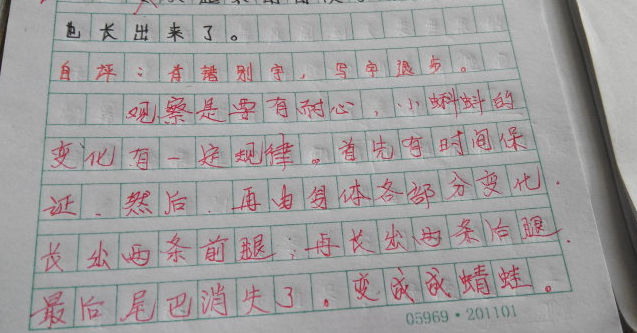 也长出来了。
自评：有错别字，写字退步。
观察是要有耐心，小蝌蚪的
变化有一定规律。首先有时间保
证．然后．再由身体各部分变化．
长出两条前腿；再长出两条后腿．
最后尾巴消失了。变成成蜻蛙。
05969·201101